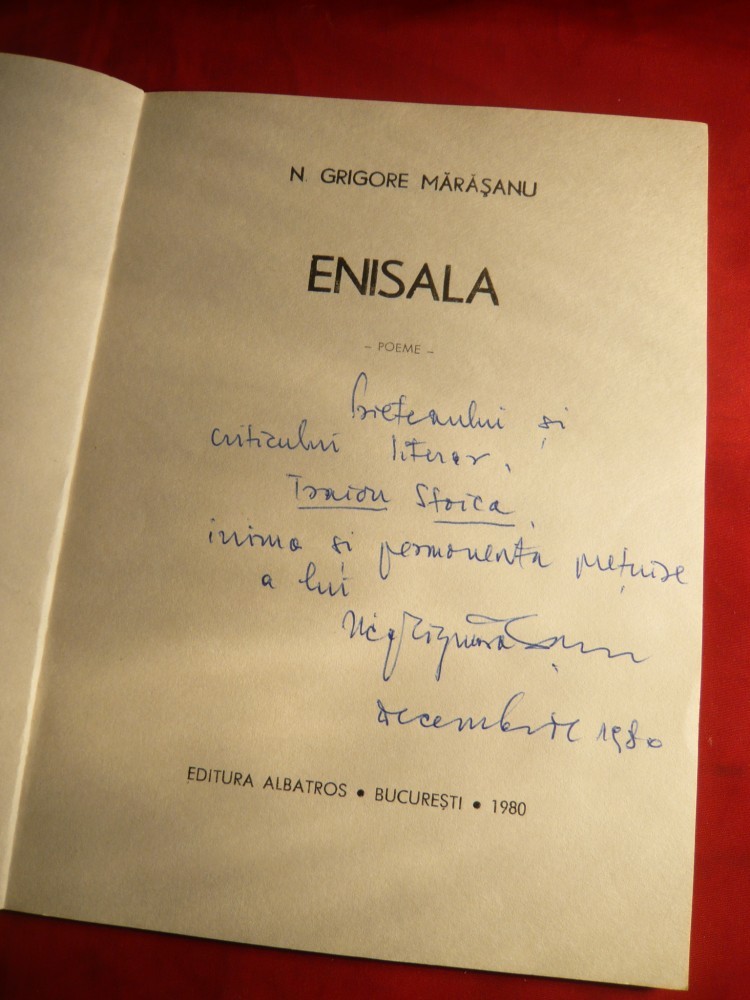 N. GRIGORE MĂRĂȘANU
ENISALA
– POEME –
Prietenului și
criticului literar,
Traian Stoica,
inima și permanenta prețuire
a lui
decembrie 1980
EDITURA ALBATROS • BUCUREȘTI • 1980